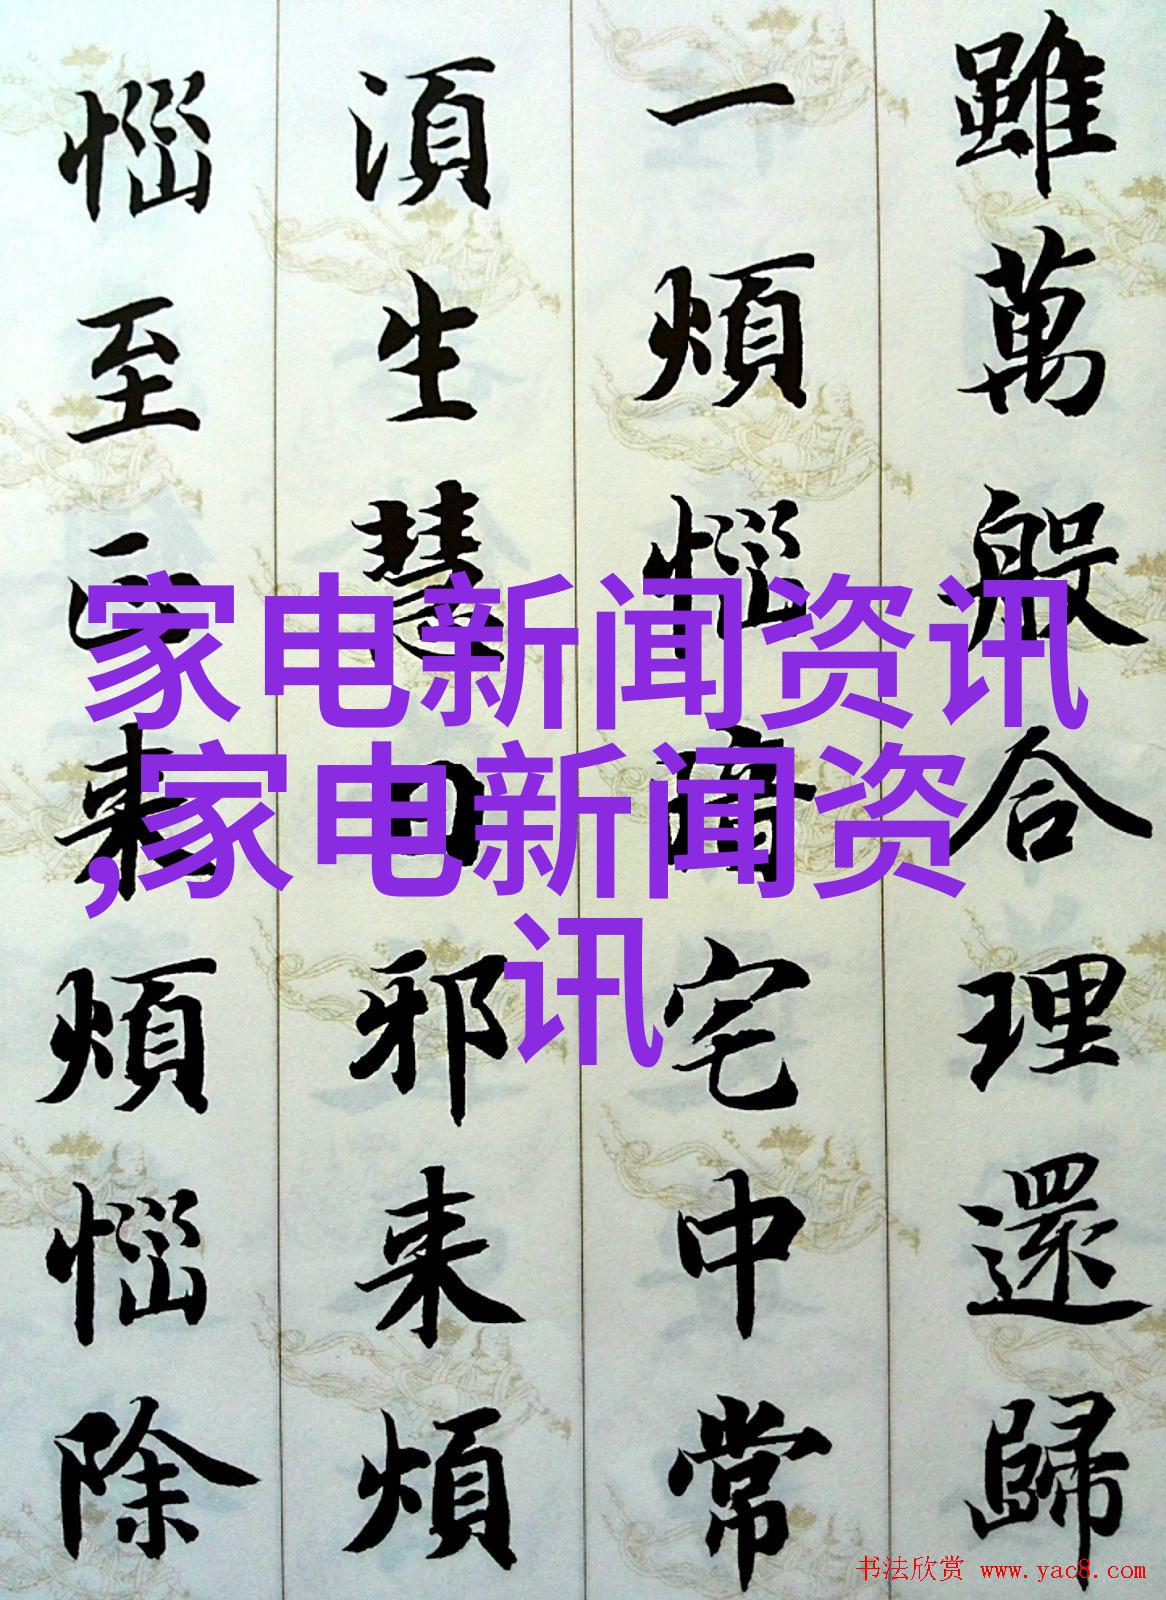 雖萬般合理還歸
一煩惱暗宅中常
湏生慧日邪来煩
惱至正来煩惱除
家电新闻资讯
,家电新闻资
讯
书法欣赏 www.yac8.com